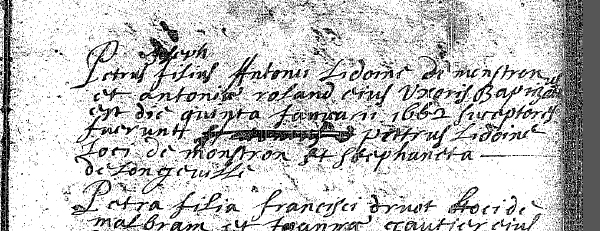 Joseph
Petrus filius Antonii Lidoine de monstron
et antoniæ roland eius Uxoris Baptizatus
est die quinta Januarii 1662 susceptores
fuerunt petrus Lidoine
loci de monstron et stephaneta
de Longeville
Petra filia francisci druot loci de
malbram et Joanna gautier eius